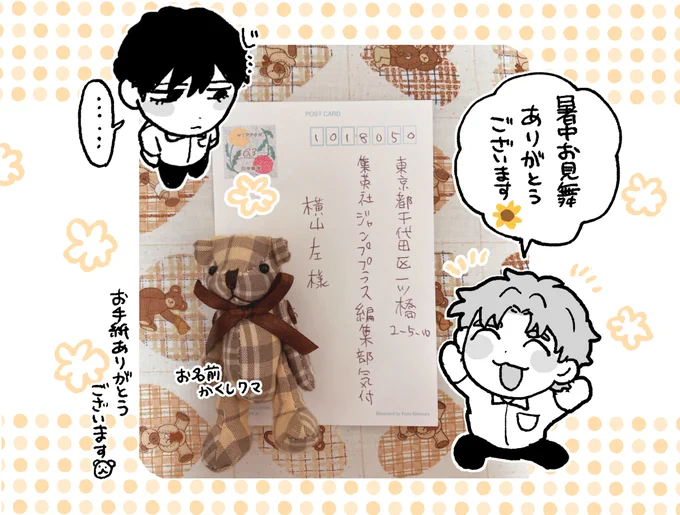 じ…
……
POST CARD
1018050
東京都千代田区一ツ橋
2-5-10
集英社ジャンププラス編集部気付
横山左様
63
お名前
かくしクマ
暑中お見舞
ありがとう
ございます
お手紙ありがとう
ございます